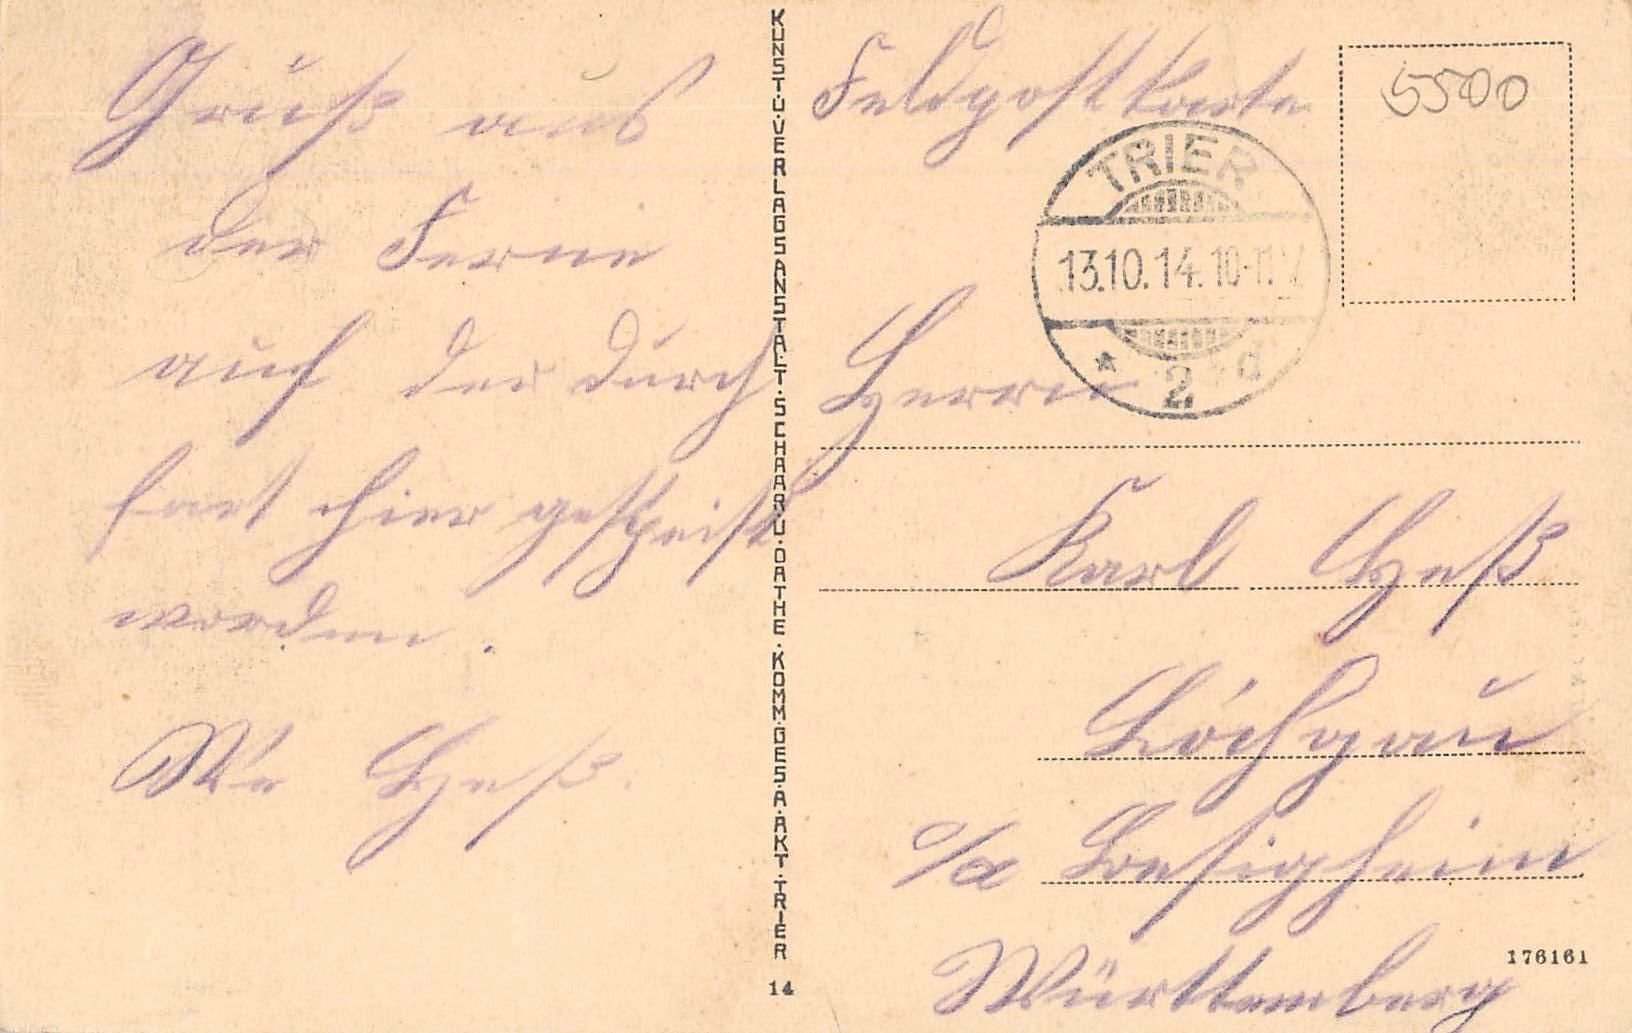 Gruß aus
der Ferne
auf der Durch
fart hier gespeist
worden.
We Heß.
KUNST.U.VERLAGSANSTALT.SCHAAR.U.DATHE.KOMM.GES.A.AKT.TRIER
14
Feldpostkarte
5500
TRIER
13.10.14.10-11.V
* 2 d
Herrn
Karl Heß
Löchgau
o/a Besigheim
Württemberg
176161